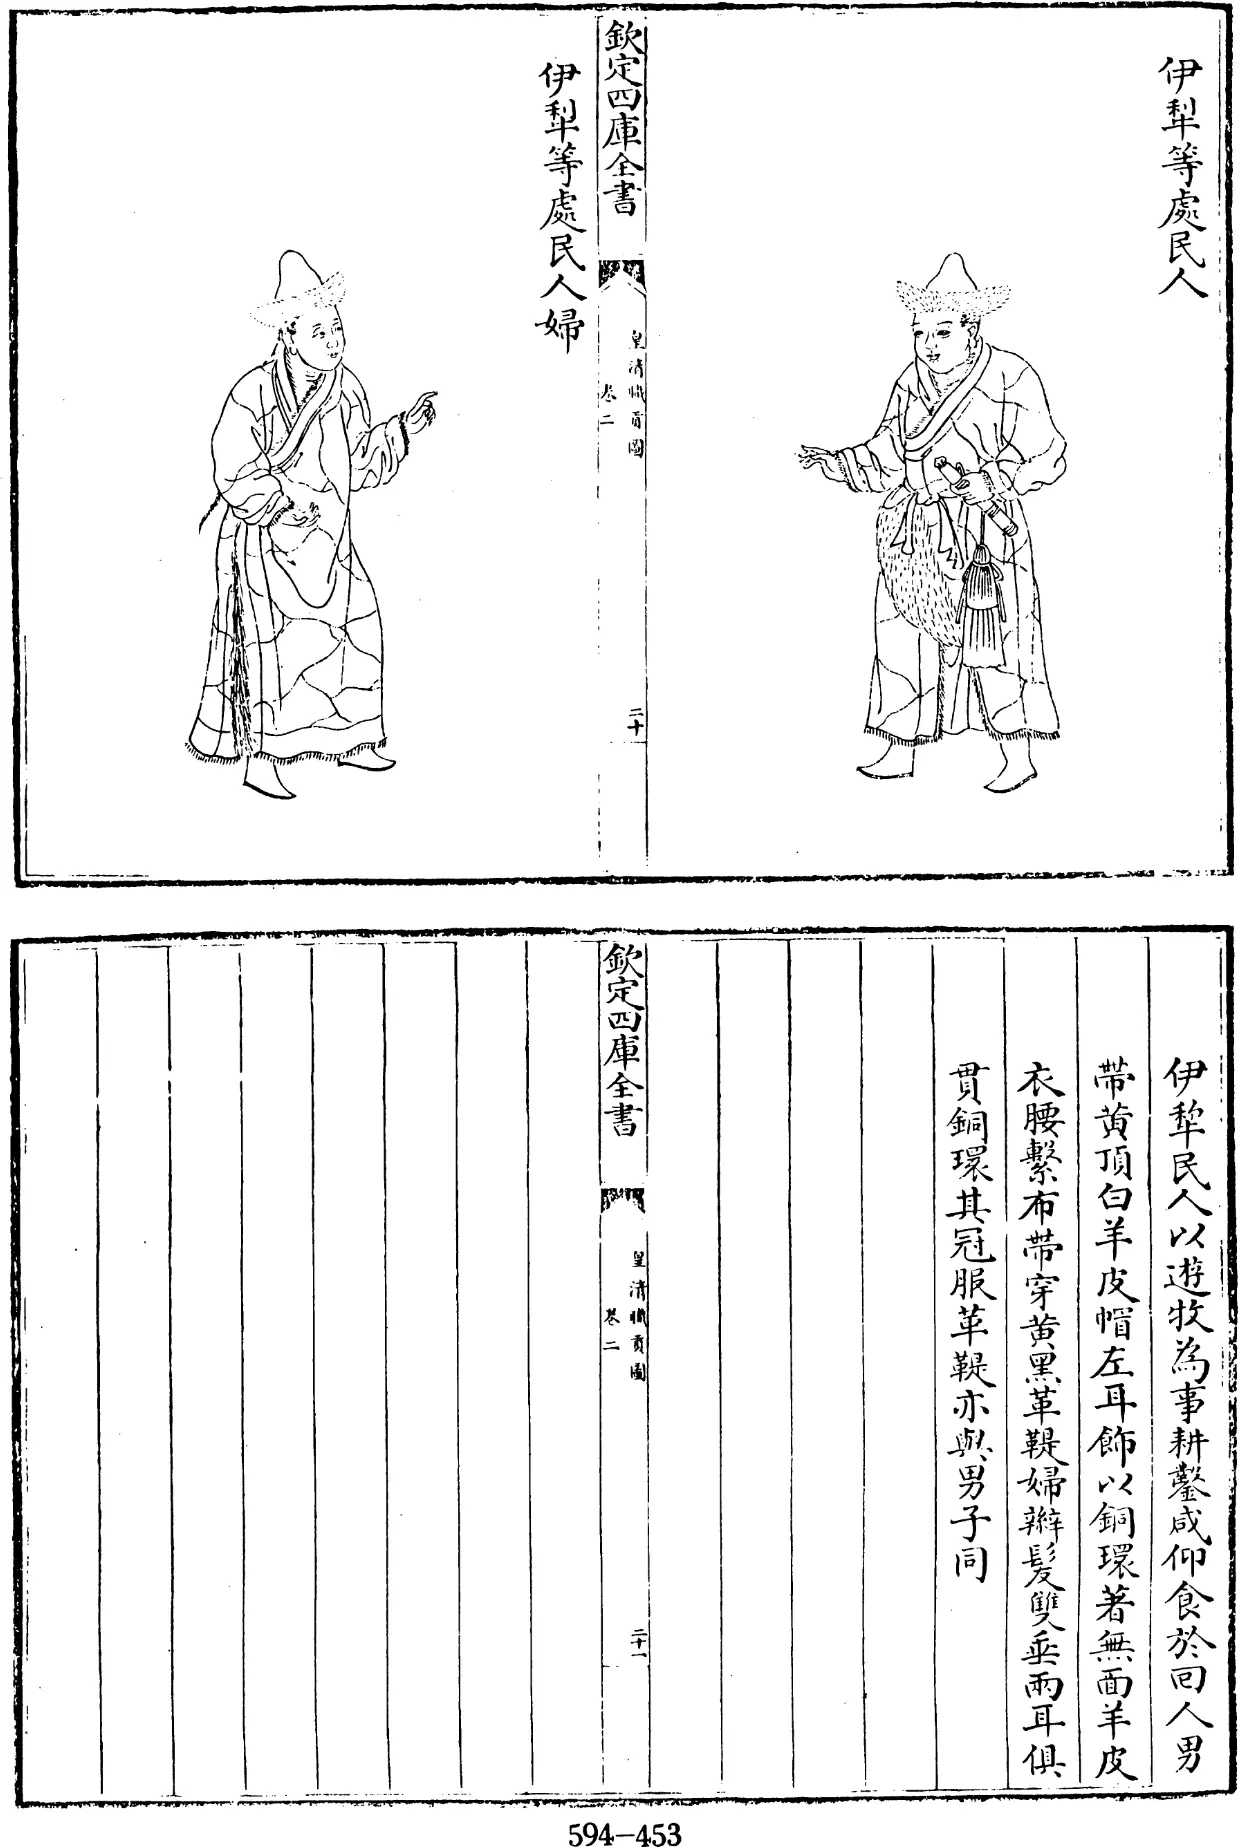 伊犁等處民人
欽定四庫全書
皇清職貢圖
卷二
二十
伊犁等處民人婦
伊犂民人以遊牧為事耕鑿咸仰食於回人男
帶黄頂白羊皮帽左耳飾以銅環著無面羊皮
衣腰繫布帶穿黄黑革鞮婦辮髮雙垂兩耳俱
貫銅環其冠服革鞮亦與男子同
欽定四庫全書
皇清職貢圖
卷二
二十一
594-453